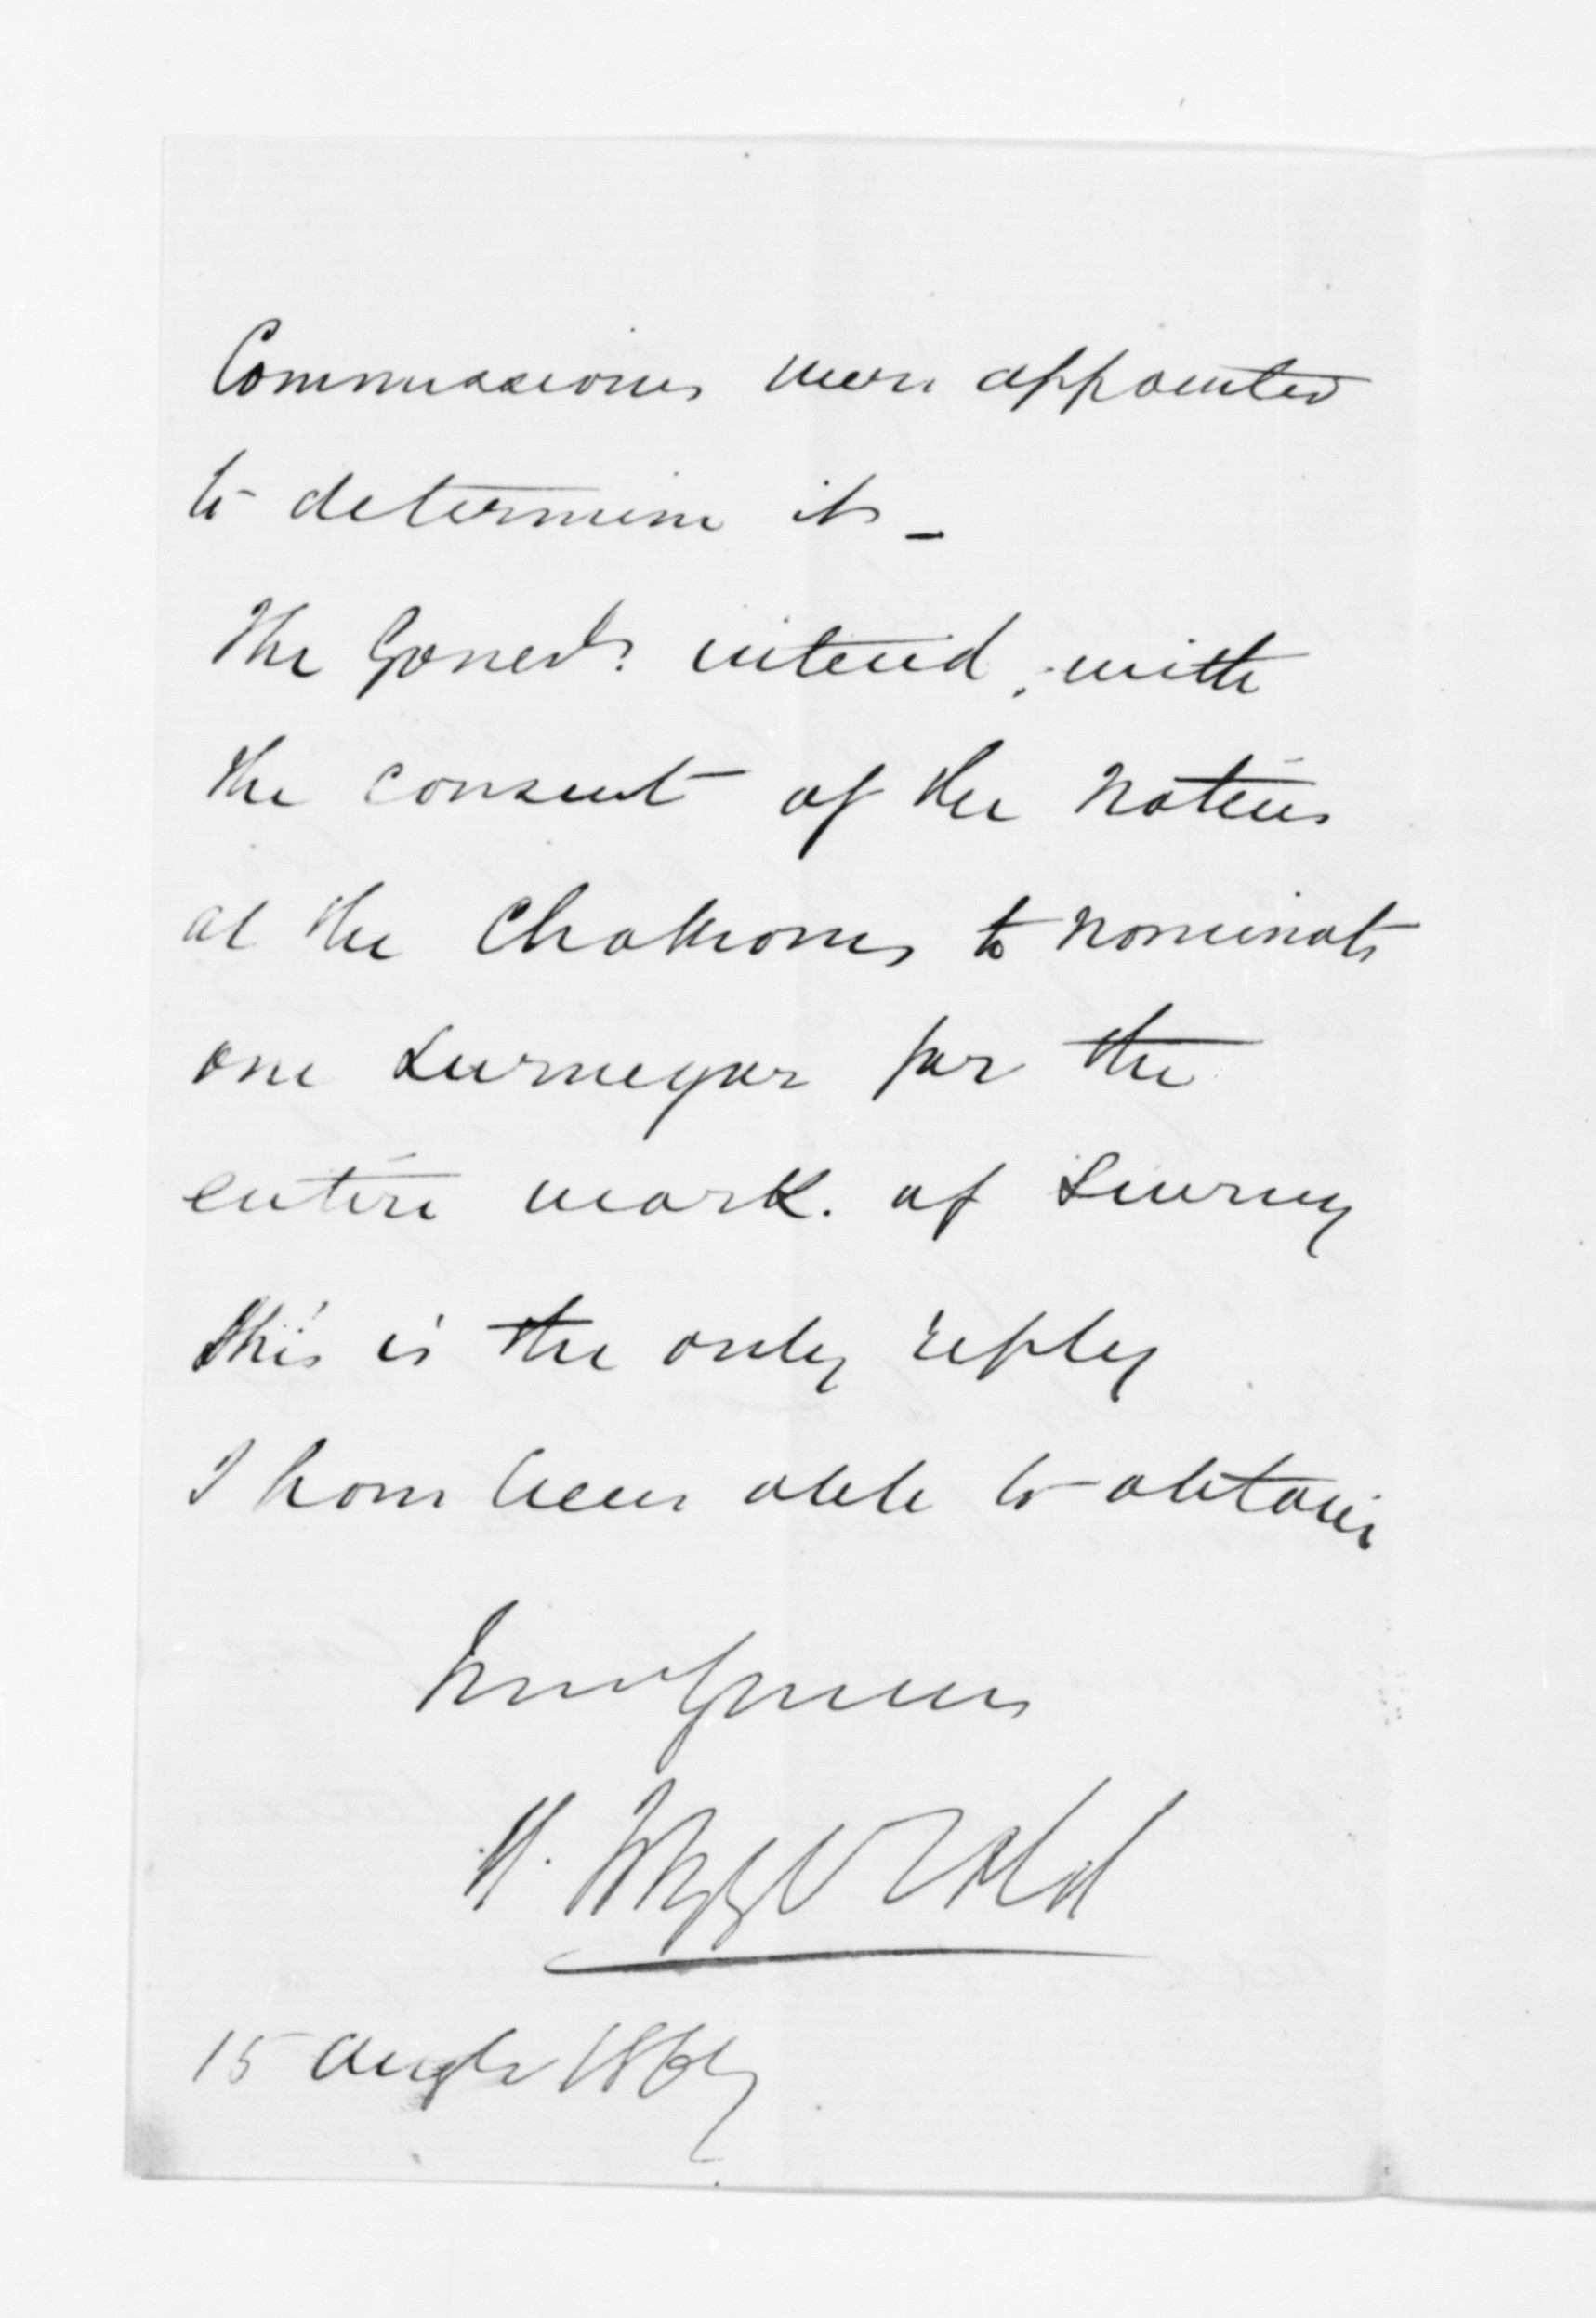 Commissions were appointed
to determine it -
The Govert. intend, with
the consent of the Natives
at the Chathams to nominate
one Surveyor for the
entire work. of Survey
This is the only reply
I have been able to obtain
H. Fitzgerald
15 Augt 1867